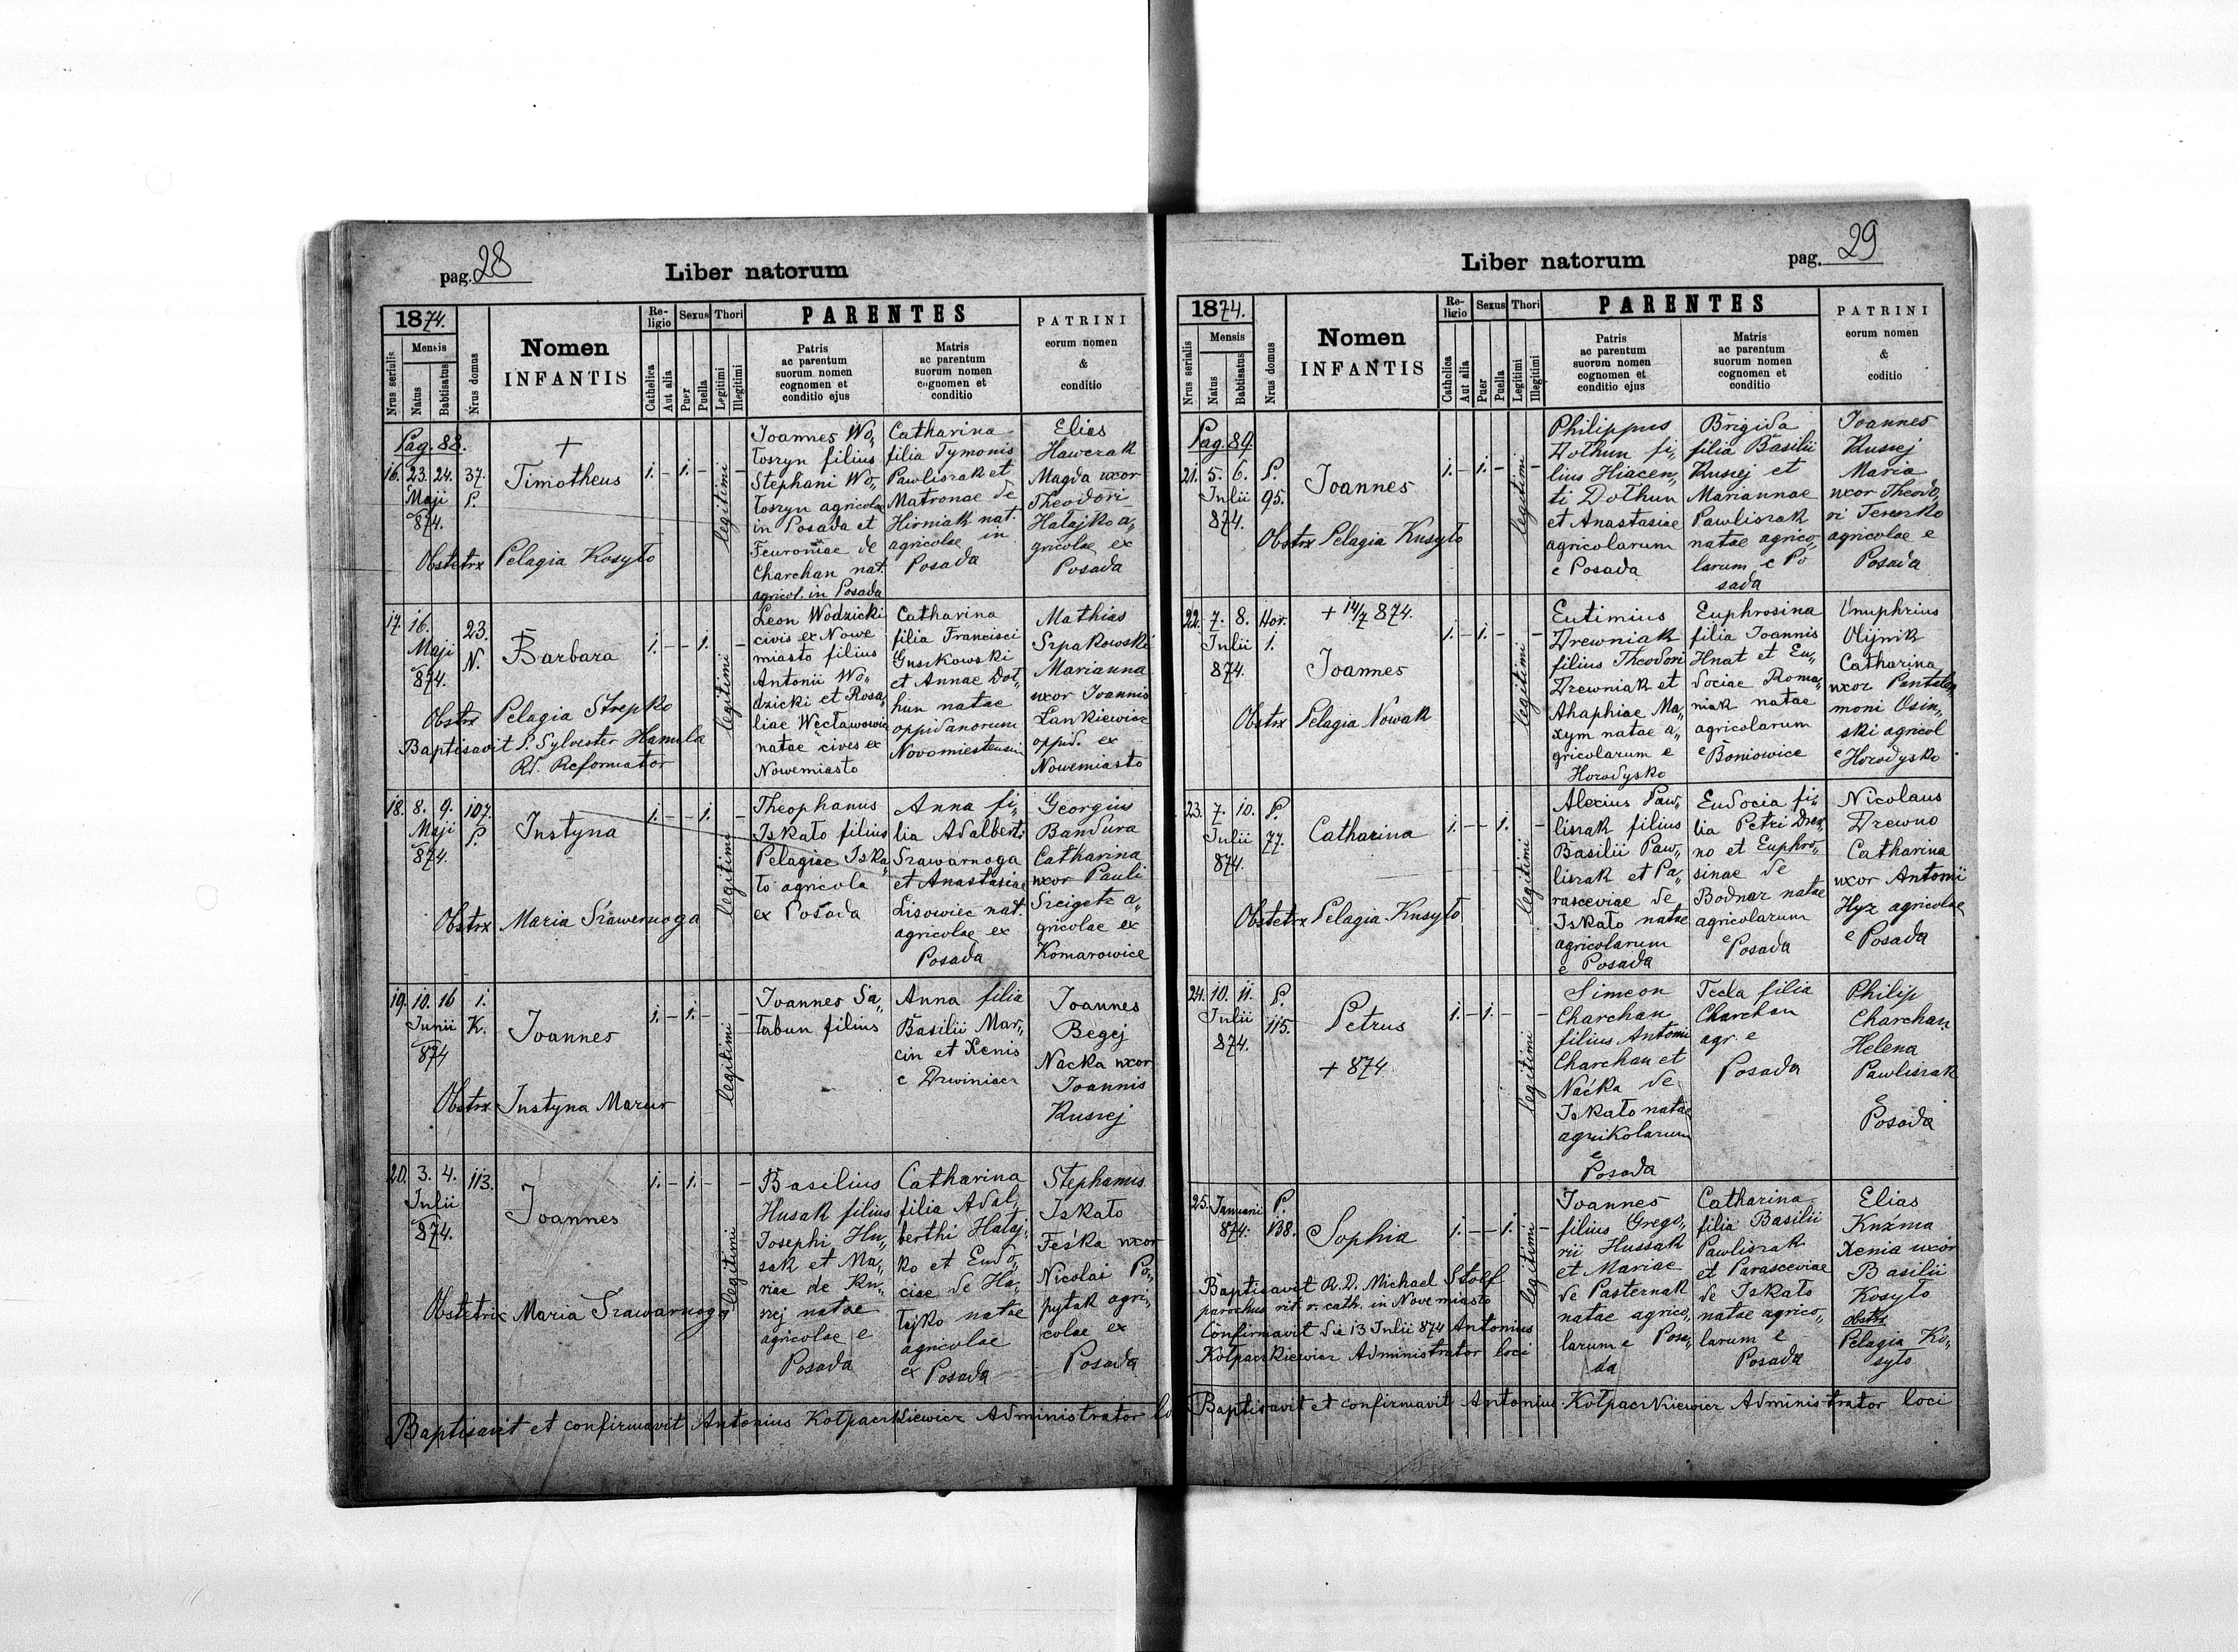 pag. 28
Liber natorum
1874.
Nrus serialis
Mensis
Natus
Babtisatus
Nrus domus
Nomen
INFANTIS
Religio
Catholica
Aut alia
Sexus
Puer
Puella
Thori
Legitimi
Illegitimi
PARENTES
Patris
ac parentum
suorum nomen
cognomen et
conditio ejus
Matris
ac parentum
suorum nomen
cognomen et
conditio
PATRINI
eorum nomen
&
conditio
Pag. 88.
16. 23. 24. 37.
Maji P.
874.
+
Timotheus
Obstetrx Pelagia Kosyło
1. - 1. - -
legitimi
Joannes Wo„
łoszyn filius
Stephani Wo„
łoszyn agricolae
in Posada et
Feuroniae de
Charchan nat.
agricol. in Posada
Catharina
filia Tymonis
Pawliszak et
Matronae de
Hirniak nat.
agricolae in
Posada
Elias
Hawczak
Magda uxor
Theodori
Hałajko a„
gricolae ex
Posada
17. 16. 23.
Maji N.
874.
Barbara
Obstrx Pelagia Strepko
Baptisavit P. Sylvester Hamela
Rd. Reformator
1. - - 1. -
legitimi
Leon Wodzicki
civis ex Nowe
miasto filius
Antonii Wo„
dzicki et Rosa„
liae Węcławowicz
natae cives ex
Nowemiasto
Catharina
filia Francisci
Guszkowski
et Annae Doł„
hun natae
oppidanorum
Novomiestensium
Mathias
Szpakowski
Marianna
uxor Joannis
Łankiewicz
oppid. ex
Nowemiasto
18. 8. 9. 107.
Maji P.
874.
Justyna
Obstrx Maria Szawernoga
1. - - 1. -
legitima
Theophanus
Iskało filius
Pelagiae Iska„
ło agricola
ex Posada
Anna fi„
lia Adalberti
Szawarnoga
et Anastasiae
Lisowiec nat.
agricolae ex
Posada
Georgius
Bandura
Catharina
uxor Pauli
Szeigetz a„
gricolae ex
Komarowice
19. 10. 16 1.
Junii K.
874
Joannes
Obstrx Justyna Mazur
1. - 1. - -
legitimi
Joannes Sa„
łabun filius
Anna filia
Basilii Mar„
cin et Xenis
e Drwiniacz
Joannes
Begej
Nacka uxor
Joannis
Kuszej
20. 3. 4. 113.
Julii
874.
Joannes
Obstetrix Maria Szawarnoga
1. - 1. - -
legitimi
Basilius
Husak filius
Josephi Hu„
sak et Ma„
riae de Ku„
zej natae
agricolae e
Posada
Catharina
filia Adal„
berthi Hałaj„
ko et Eudo„
ciae de Ha„
łajko natae
agricolae
ex Posada
Stephanus
Iskało
Feśka uxor
Nicolai Po„
pytak agri„
colae ex
Posada
Baptisavit et confirmavit Antonius Kołpaczkiewicz Administrator lo
pag. 29
Liber natorum
1874.
Nrus serialis
Mensis
Natus
Babtisatus
Nrus domus
Nomen
INFANTIS
Religio
Catholica
Aut alia
Sexus
Puer
Puella
Thori
Legitimi
Illegitimi
PARENTES
Patris
ac parentum
suorum nomen
cognomen et
conditio ejus
Matris
ac parentum
suorum nomen
cognomen et
conditio
PATRINI
eorum nomen
&
coditio
Pag. 89
21. 5. 6. P.
Julii 95.
874.
Joannes
Obstrx Pelagia Kusyło
1. - 1. - -
legitimi
Philippus
Dołhun fi„
lius Hiacen„
ti Dołhun
et Anastasiae
agricolarum
e Posada
Brigida
filia Basilii
Kuszej et
Mariannae
Pawliszak
natae agrico„
larum e Po
sada
Joannes
Kuszej
Maria
uxor Theodo„
ri Tereszko
agricolae e
Posada
22. 7. 8. Hor.
Julii 1.
874.
+ 14/7 874.
Joannes
Obstrx Pelagia Nowak
1. - 1. - -
legitimi
Eutimius
Drewniak
filius Theodori
Drewniak et
Ahaphiae Ma„
xym natae a„
gricolarum e
Horodysko
Euphrosina
filia Joannis
Hnat et Eu„
dociae Roma„
niak natae
agricolarum
e Boniowice
Onuphrius
Olijnik
Catharina
uxor Pantale„
moni Osin„
ski agricol
e Horodysko
23. 7. 10. P.
Julii 77.
874.
Catharina
Obstetrx Pelagia Kusyło
1. - - 1. -
legitimi
Alexius Paw„
liszak filius
Basilii Paw„
liszak et Pa„
rasceviae de
Iskało natae
agricolarum
e Posada
Eudocia fi„
lia Petri Drew„
no et Euphro„
sinae de
Bodnar natae
agricolarum
e Posada
Nicolaus
Drewno
Catharina
uxor Antonii
Hyz agricolae
e Posada
24. 10. 11. P.
Julii 115.
874.
Petrus
+ 874
1. - 1. - -
legitimi
Simeon
Charchan
filius Antoni
Charchan et
Naćka de
Iskało natae
agrikolarum
e
Posada
Tecla filia
Charchan
agr. e
Posada
Philip
Charchan
Helena
Pawliszak
e
Posada
25. Januarii P.
874. 138.
Sophia
1. - - 1. -
legitimi
Baptisavit R.D. Michael Stolf
parochus rit. r. cath. in Nove miasto
Confirmavit die 13 Julii 874 Antonius
Kołpaczkiewicz Administrator loci
Joannes
filius Grego„
rii Hussak
et Mariae
de Pasternak
natae agrico„
larum e Posa„
da
Catharina
filia Basilii
Pawliszak
et Parasceviae
de Iskało
natae agrico„
larum e
Posada
Elias
Kuźma
Xenia uxor
Basilii
Kosyło
obstrx
Pelagia Ko„
syło
Baptisavit et confirmavit Antonius Kołpaczkiewicz Administrator loci